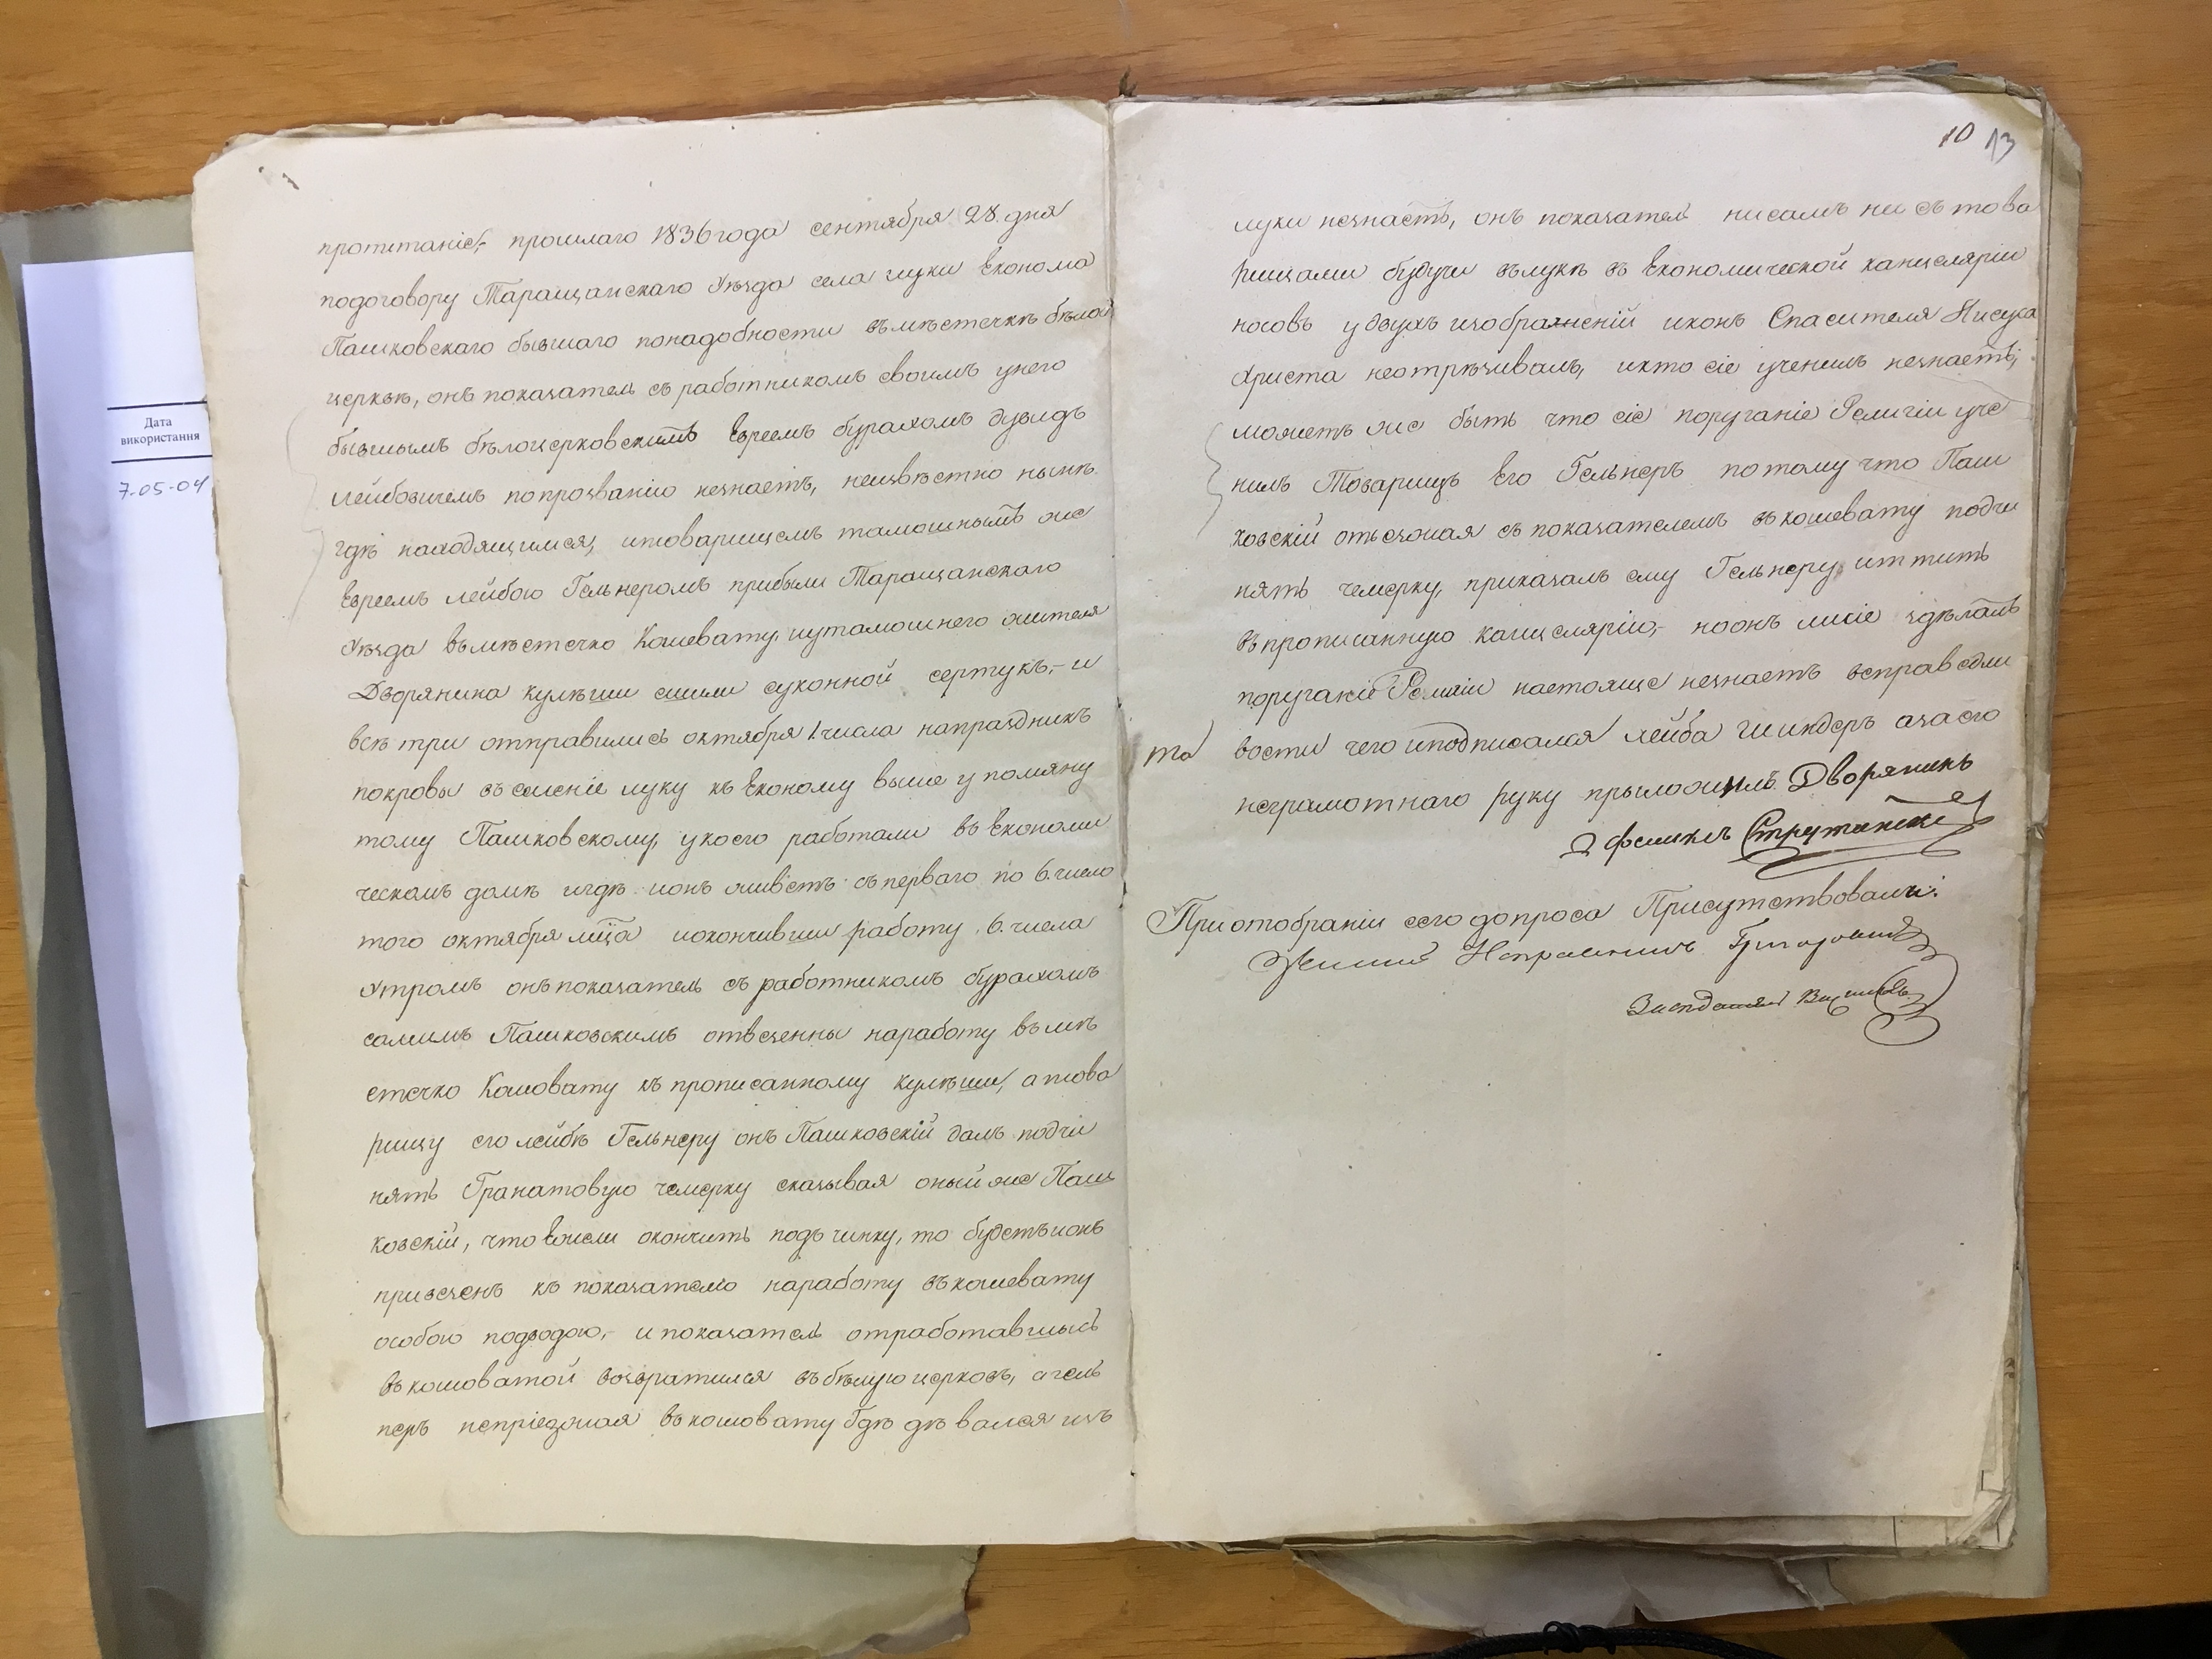 Дата
використання
7-05-04
пропитаніе,- прошлаго 1836 года сентября 28. дня
подоговору Таращанскаго уѣзда села луки Економа
Пашковскаго бывшаго понадобности въмѣстечкѣ бѣлой
церквѣ, онъ показатель съ работникомъ своимъ унего
бывшымъ бѣлоцерковскимъ Евреемъ бурахомъ дувидъ
лейбовичемъ попрозванию незнаетъ, неизвѣстно нынѣ
гдѣ находящимся, итоварищемъ тамошнымъ же
Евреемъ лейбою Гельнеромъ прибыли Таращанскаго
уѣзда вьмѣстечко Кошевату, иутамошнего жителя
Дворянина кулѣши сшили суконной сертукъ,- и
всѣ три отправились октября 1. числа напраздникъ
покровы въ селеніе луку къ Економу выше упомяну
тому Пашковскому, укоего работали въ Економи
ческомъ домѣ игдѣ ионъ живетъ съперваго по 6. число
того октября мца иокончивши работу 6. числа
утромъ онъ показатель съ работникомъ бурахомъ
самимъ Пашковскимъ отвезенны наработу вьмѣ
стечко Кашовату къ прописанному кулѣши, атова
рищу его лейбѣ Гельнеру онъ Пашковскій далъ подчи
нять Гранатовую чемерку сказывая оный же Паш
ковскій, что Еюели окончитъ подъчинку, то будетъ ионъ
привезенъ къ показателю наработу въкошевату
особою подводою,- и показатель отработавшысь
вь кошоватой возвратился въбѣлуюцерковь, агель
неръ непріезжая вь кошовату Гдѣ дѣвался изъ
10 13
луки незнаетъ, онъ показатель нисамъ ни съ това
рищами будучи вълукѣ въ Економической канцеляріи
носовъ у двухъ изображеній иконъ Спасителя Иисуса
Христа неотрѣзивалъ, икто сіе учинилъ незнаетъ;
можетъ же быть что сіе поруганіе Религіи учи
нилъ Товарищъ Его Гельнеръ потому что Паш
ковскій отъезжая съ показателемъ въкошевату подчи
нять чемерку, приказалъ ему Гельнеру иттить
въпрописанную канцелярію,- ноонъ лисіе здѣлалъ
поруганіе Религіи настояще незнаетъ всправедли
та вости чего иподписался лейба Шнидеръ азаего
неграмотнаго руку прыложилъ Дворянинъ
Феликсъ Струтинскі
При отобраніи сего допроса Присутствовали:
Земскій Исправникъ Григоровичъ
Засѣдатель